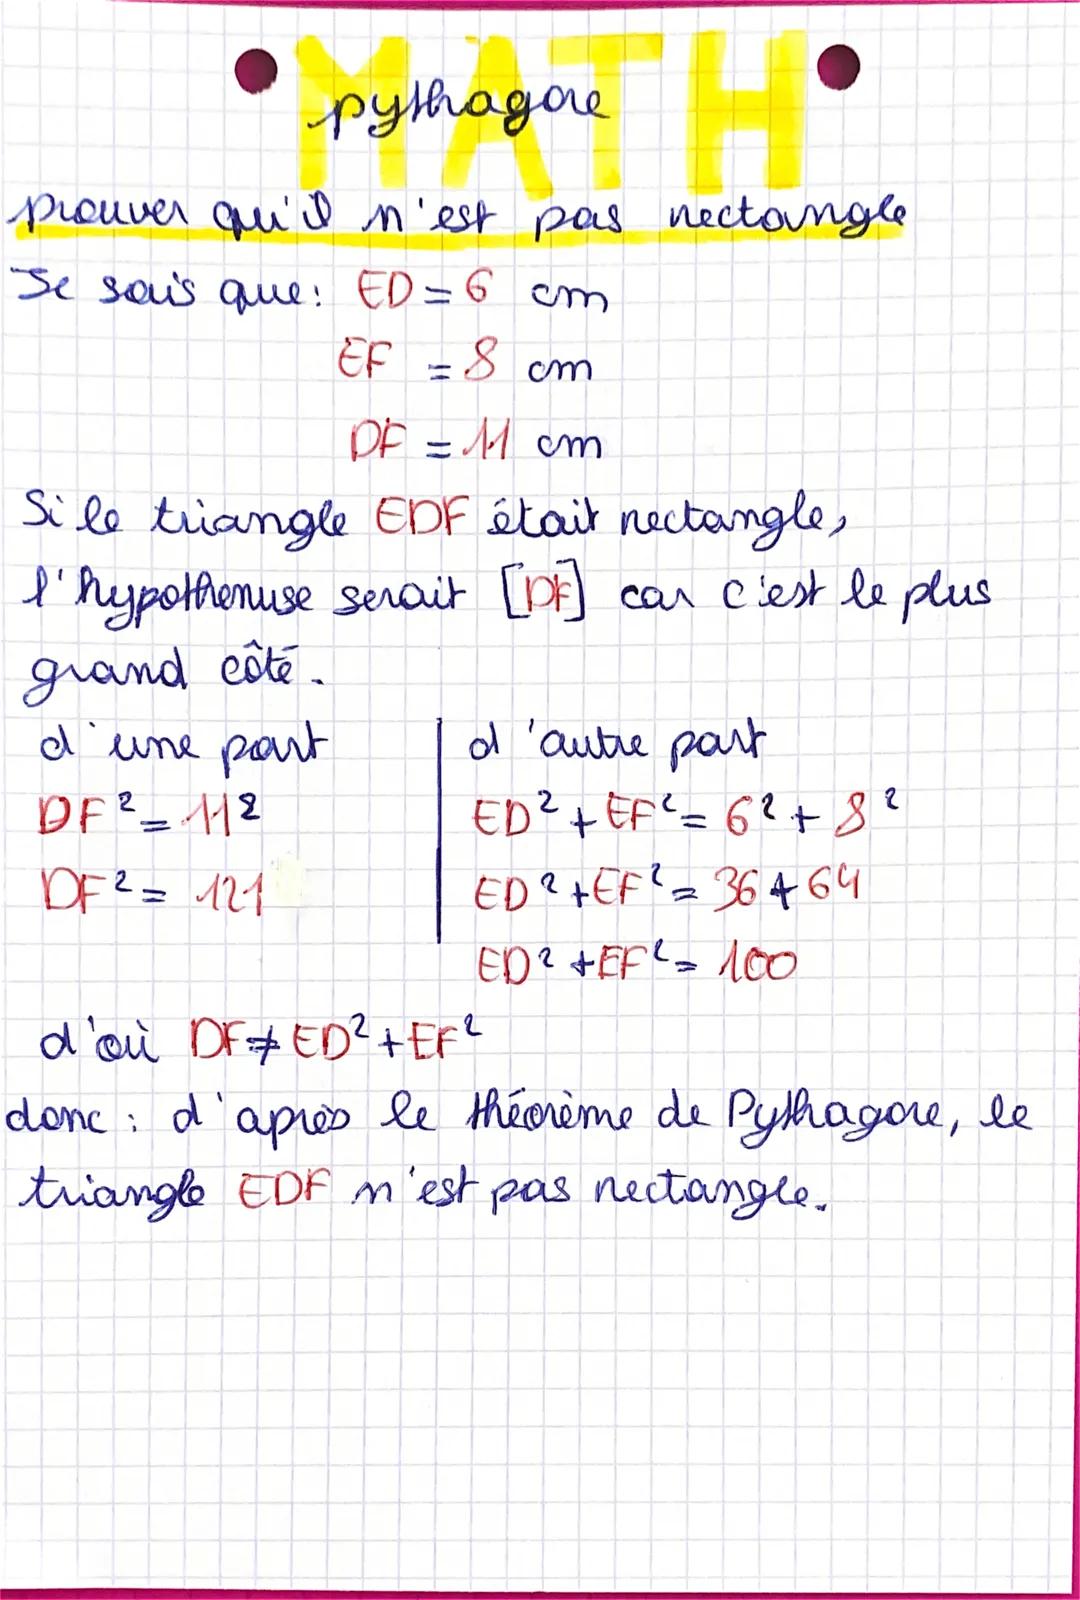 MATH
pythagore
prouver qu'il n'est pas rectangle
Je sais que: ED = 6 cm
EF = 8 cm
DF = 11 cm
Si le triangle EDF était rectangle,
l'hypothenuse serait [DF] car c'est le plus
grand côté.
d'une part
DF² = 11²
DF² = 121
d'autre part
ED² + EF² = 6² + 8²
ED² + EF² = 36 + 64
ED² + EF² = 100
d'où DF ≠ ED² + EF²
donc : d'après le théorème de Pythagore, le
triangle EDF n'est pas rectangle.